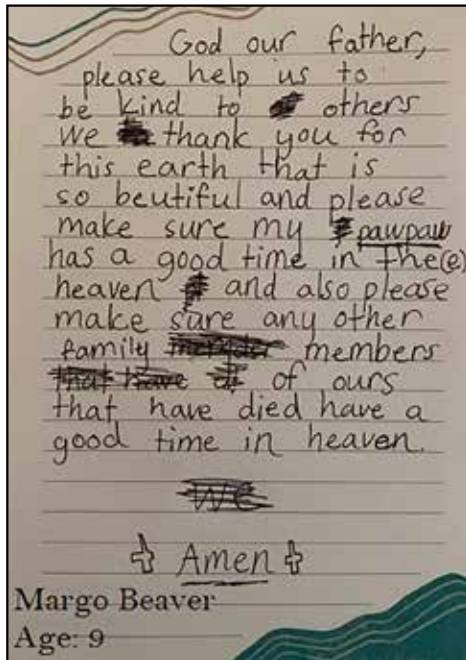 God our father,
please help us to
be kind to others
We thank you for
this earth that is
so beutiful and please
make sure my pawpaw
has a good time in the(e)
heaven and also please
make sure any other
family members
of ours
that have died have a
good time in heaven.
We
Amen
Margo Beaver
Age: 9